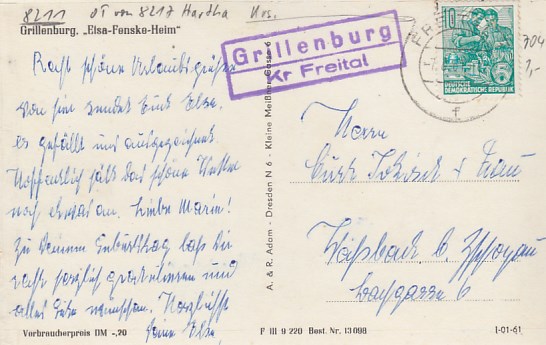 8211 OT von 8217 Hartha Krs.
Grillenburg. „Elsa-Fenske-Heim"
Recht schöne Urlaubsgrüße
von hier sendet Euch Else.
es gefällt uns ausgezeichnet.
Hoffentlich hält das schöne Wetter
noch etwas an. Liebe Marie!
Zu Deinem Geburtstag laß dir
recht herzlich gratulieren und
alles Gute wünschen. Herzlichst
Deine Else.
Verbraucherpreis DM -,20
A. & R. Adam - Dresden N 6 - Kleine Meißner Gasse 6
F III 9 220 Best. Nr. 13098
Grillenburg
Kr Freital
10
DEUTSCHE
DEMOKRATISCHE REPUBLIK
f
704
1,-
Herrn
Kurt u. Frau
b. Zschopau
6
I-01-61